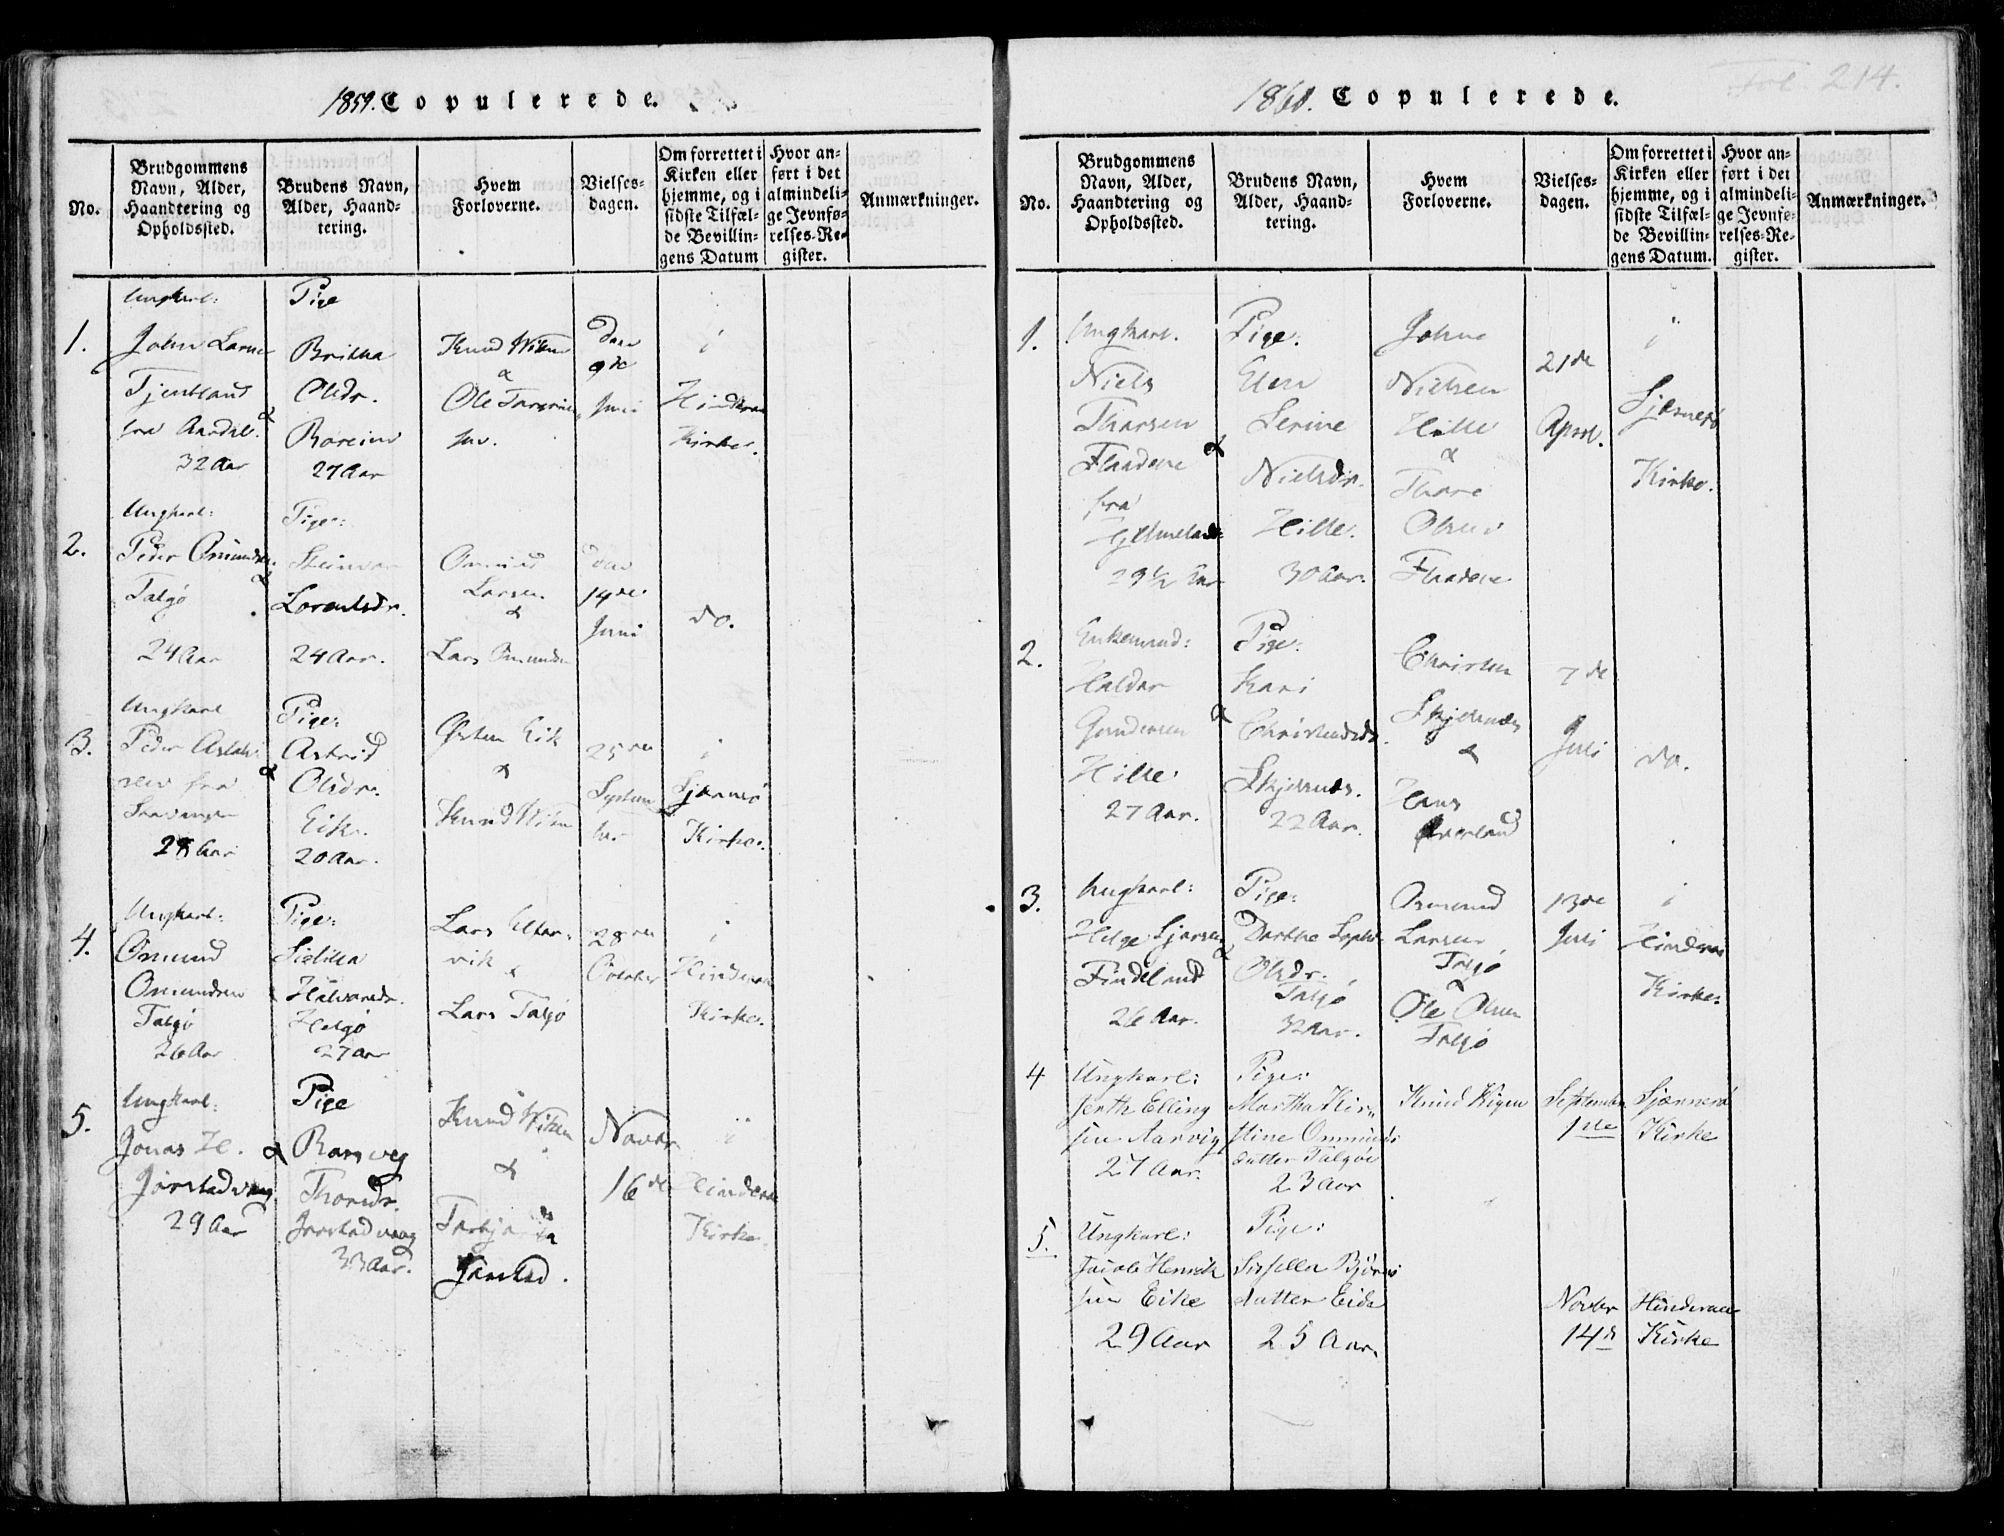 1859. Copulerede.
No.
Brudgommens
Navn, Alder,
Haandtering og
Opholdssted.
Brudens Navn,
Alder, Haand-
tering.
Hvem
Forloverne.
Vielses-
dagen.
Om forrettet i
Kirken eller
hjemme, og i
sidste Tilfæl-
de Bevillin-
gens Datum
Hvor an-
ført i det
almindeli-
ge Jevnfø-
relses-Re-
gister.
Anmærkninger.
1.
Ungkarl:
John Larsen
Tjentland
fra Aardal.
32 Aar
&
Pige
Britha
Olsdr.
27 Aar
Knud Wiken
&
Ole
den
9de
Juni
i
Hinderaa
Kirke.
2.
Ungkarl:
Peder Omundsen
Talgø
24 Aar
&
Pige:
Lorentsdr.
24 Aar.
Omund
Larsen
&
Lars Omundsen
den
14de
Juni
do.
3.
Ungkarl
Peder
sen fra
Stavanger
28 Aar
&
Pige:
Astrid
Olsdr.
Eike.
20 Aar.
Østen Eik
&
Knud Wiken
25de
Septem
ber
i
Sjærnerø
Kirke.
4.
Ungkarl:
Omund
Omundsen
Talgø
26 Aar
Pige:
Halvorsdr.
Helgø
27 Aar
Lars
vik &
Lars Talgø
28de
October
i
Hinderaa
Kirke.
5.
Ungkarl:
Jonas H.
Jørstadvaag
29 Aar
&
Pige
Rasweg
Thorsdr.
Jørstadvaag
33 Aar.
Knud Wiken
&
Jørstad.
Novbr
16de
i
Hinderaa
Kirke.
Fol. 214.
1860. Copulerede.
No.
Brudgommens
Navn, Alder,
Haandtering og
Opholdssted.
Brudens Navn,
Alder, Haand-
tering.
Hvem
Forloverne.
Vielses-
dagen.
Om forrettet i
Kirken eller
hjemme, og i
sidste Tilfæl-
de Bevillin-
gens Datum.
Hvor an-
ført i det
almindeli-
ge Jevnfø-
relses-Re-
gister.
Anmærkninger.
1.
Ungkarl.
Niels
Tharsen
Fladene
fra
Hjelmeland
29½ Aar
&
Pige:
Elen
Serine
Nielsdr.
Hille.
30 Aar.
Johne
Nielsen
Hille
&
Thore
Olsen
Fladene
21de
April.
i
Sjærnerø
Kirke.
2.
Enkemand:
Haldor
Gundersen
Hille
27 Aar.
&
Pige:
Kari
Christensdr.
Skjelsnæs.
22 Aar.
Christen
Skjelsnæs
&
Hans
7de
Juli
do.
3.
Ungkarl:
Helge Sjursen
Findeland
26 Aar.
&
Pige:
Dorthe Sophie
Olsdr.
Talgø
32 Aar.
Omund
Larsen
Talgø
&
Ole Olsen
Talgø
13de
Juli
i
Hinderaa
Kirke.
4
Ungkarl:
Elling
sen Aarvig
27 Aar.
Pige:
Martha Kir„
stine Ommunds
datter Talgøe
23 Aar
Knud Wigen
September
1ste
Sjærnerø
Kirke
5.
Ungkarl:
Jacob Henrik
sen Eike
29 Aar
Pige:
Sissella Bjørns
datter Eide
25 Aar.
Novbr
14de
Hinderaa
Kirke